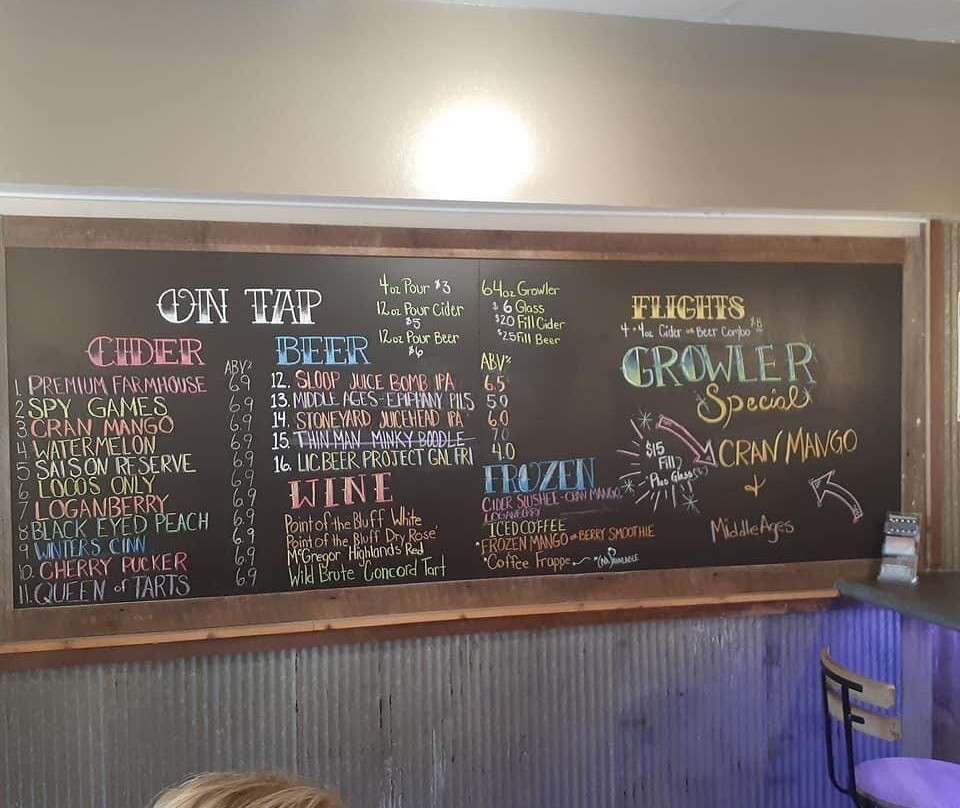 ON TAP
4oz Pour $3
12oz Pour Cider
$5
12oz Pour Beer
$6
64oz Growler
$6 Glass
$20 Fill Cider
$25 Fill Beer
CIDER
ABV%
1. PREMIUM FARMHOUSE 6.9
2 SPY GAMES 6.9
3 CRAN MANGO 6.9
4 WATERMELON 6.9
5 SAISON RESERVE 6.9
6 LOCOS ONLY 6.9
7 LOGANBERRY 6.9
8 BLACK EYED PEACH 6.9
9 WINTERS CINN 6.9
10. CHERRY PUCKER 6.9
11. QUEEN of TARTS 6.9
BEER
ABV%
12. SLOOP JUICE BOMB IPA 6.5
13. MIDDLE AGES-EPIPHANY PILS 5.0
14. STONEYARD JUICEHEAD IPA 6.0
15. THIN MAN MINKY BOODLE 7.0
16. LIC BEER PROJECT GAL FRI 4.0
WINE
Point of the Bluff White
Point of the Bluff Dry Rose'
McGregor Highlands Red
Wild Brute Concord Tart
FROZEN
CIDER SLUSHEE-CRAN MANGO,
LOGANBERRY
ICED COFFEE
*FROZEN MANGO or BERRY SMOOTHIE
*Coffee Frappe
FLIGHTS
4-4oz Cider or Beer Combo $8
GROWLER
Special
$15
Fill
Plus Glass
CRAN MANGO
+
Middle Ages